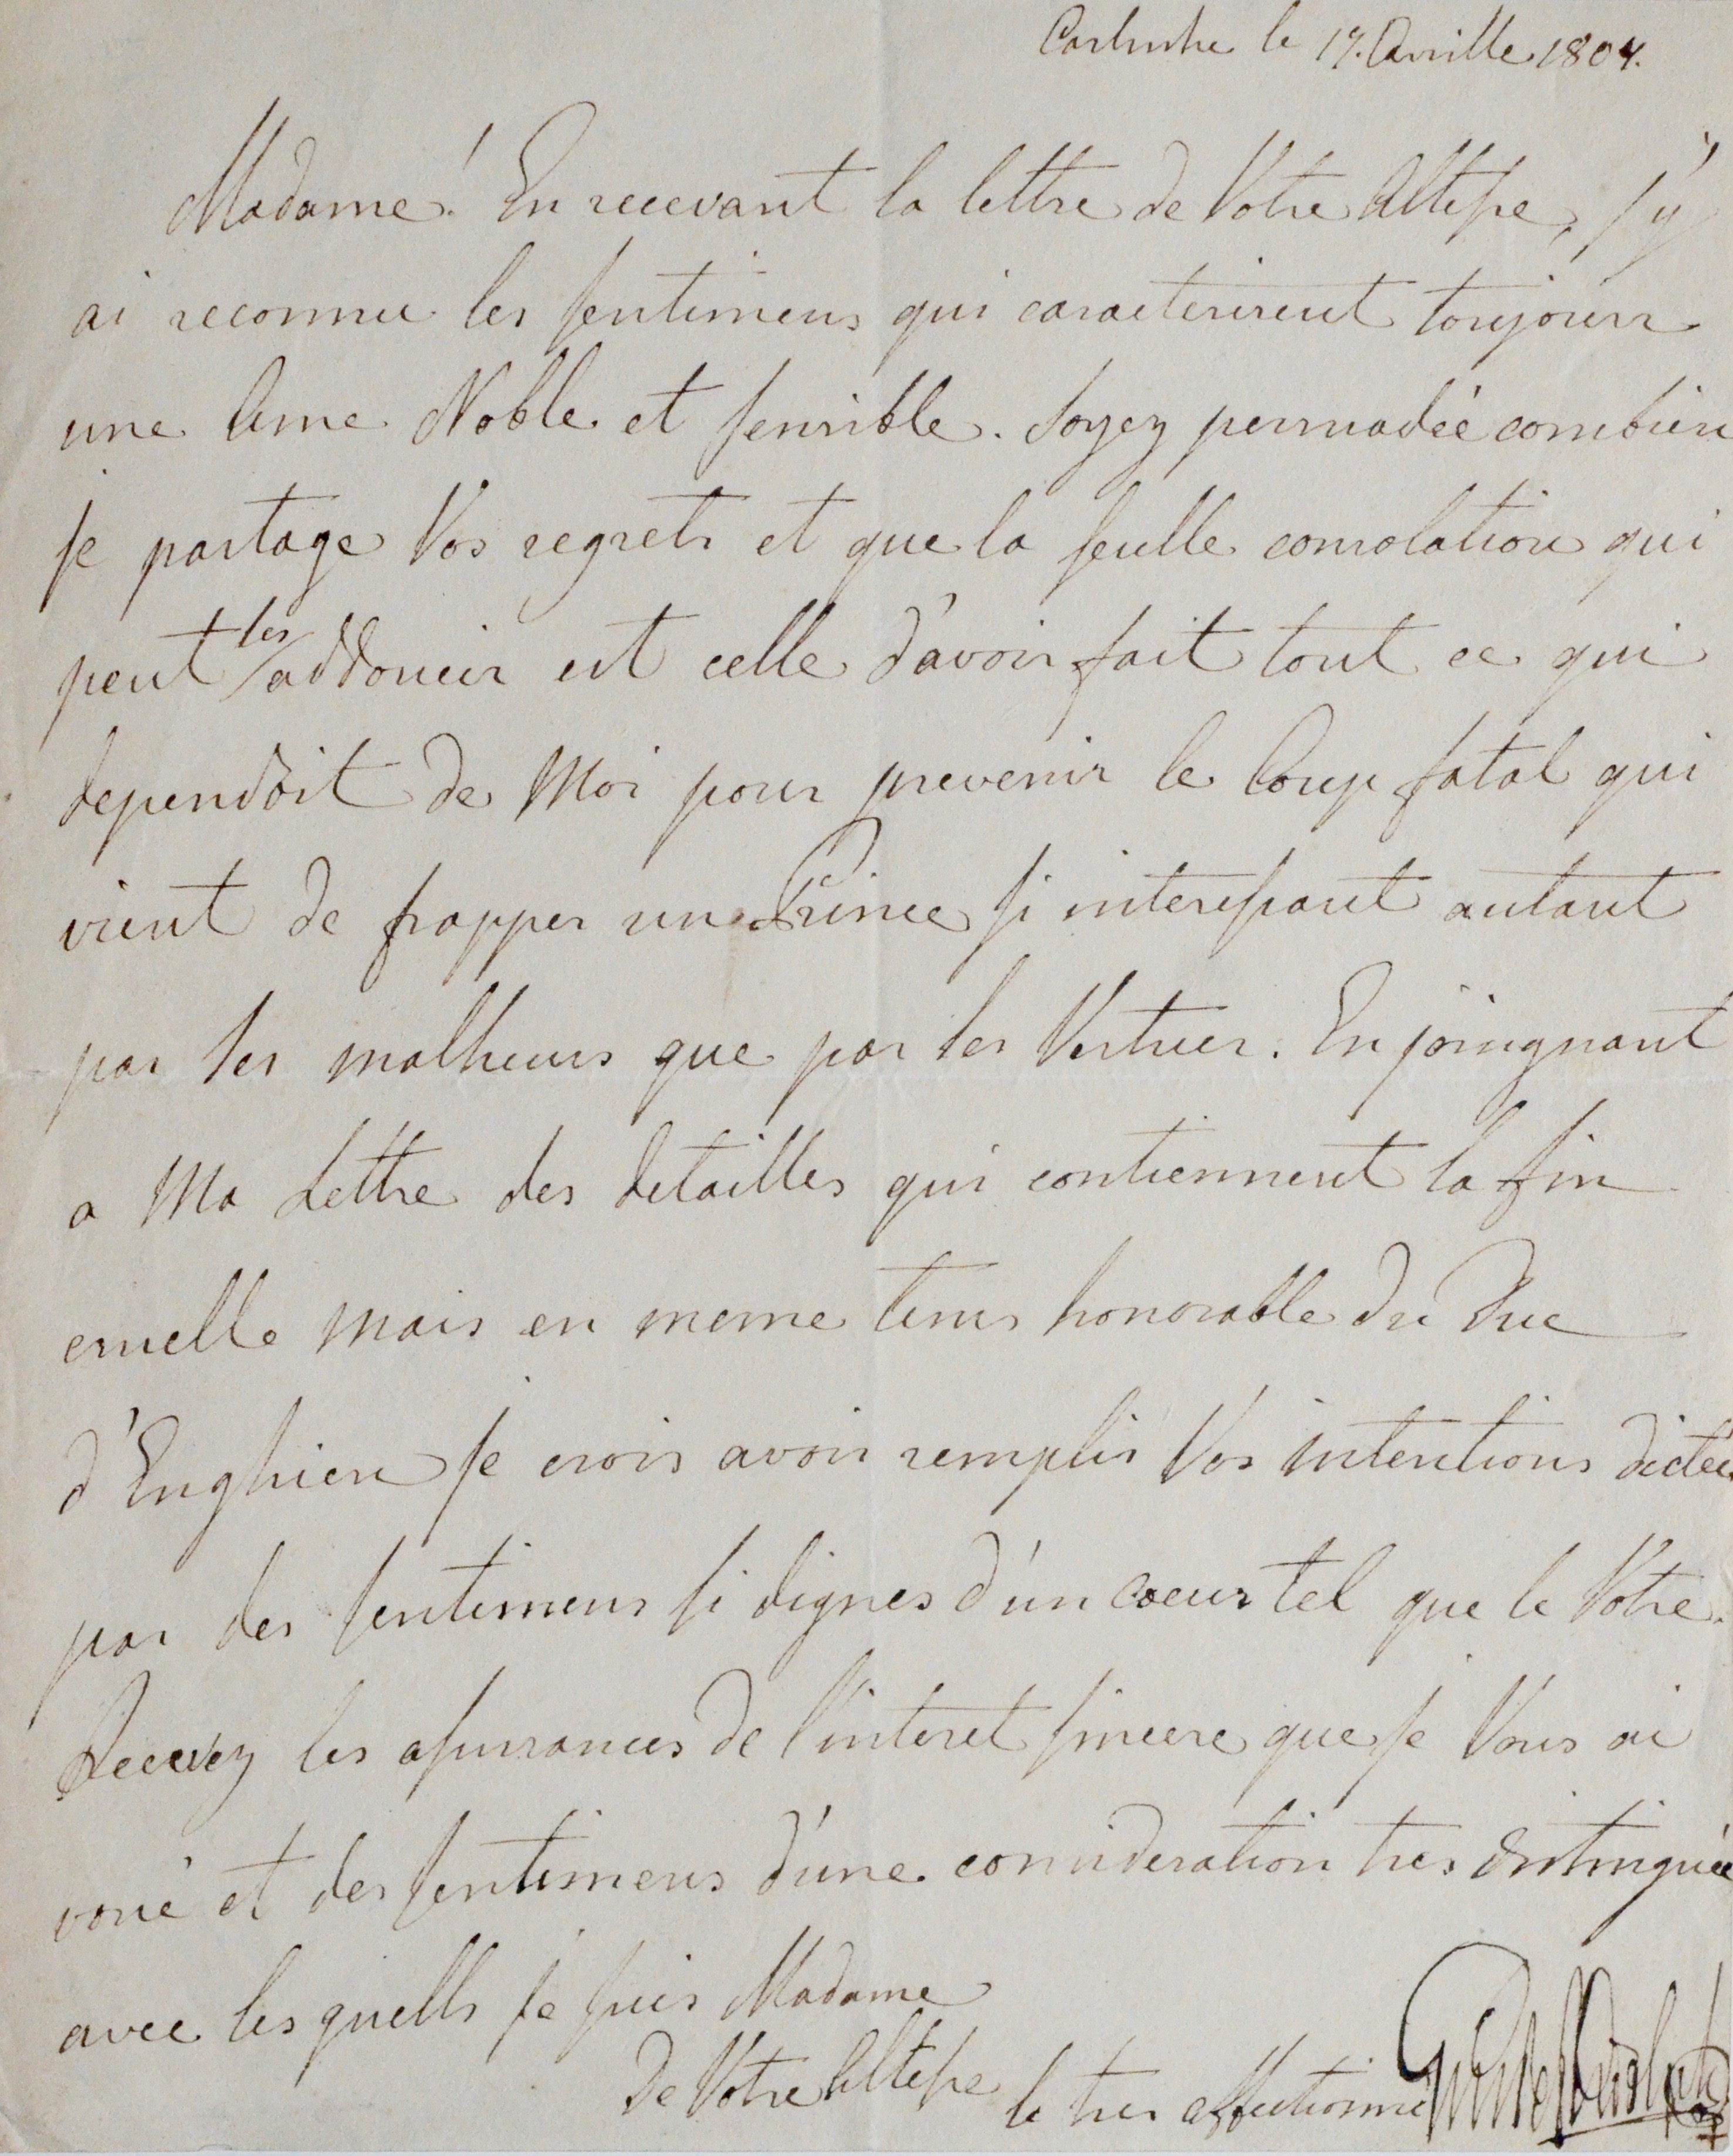 Carlsruhe le 17. Avrille 1804.
Madame! En recevant la lettre de Votre Altesse, j'y
ai reconnu les sentimens qui caracterisent toujours
une Ame Noble et sensible. Soyez persuadée combien
je partage Vos regrets et que la seulle consolation qui
peut les addoucir est celle d'avoir fait tout ce qui
dependoit de Moi pour prevenir le Coup fatal qui
vient de frapper un Prince si interessant autant
par ses malheurs que par ses Vertues. En joingnant
a Ma Lettre des detailles qui contiennent la fin
cruelle mais en meme tems honorable du Duc
d'Enghien je crois avoir remplis Vos intentions dictées
par des sentimens si dignes d'un coeur tel que le Votre.
Recevez les assurrances de l'interet sincere que je Vous ai
voué et des sentimens d'une consideration tres distinguée
avec les quells je suis Madame
De Votre Altesse
le tres affectionné